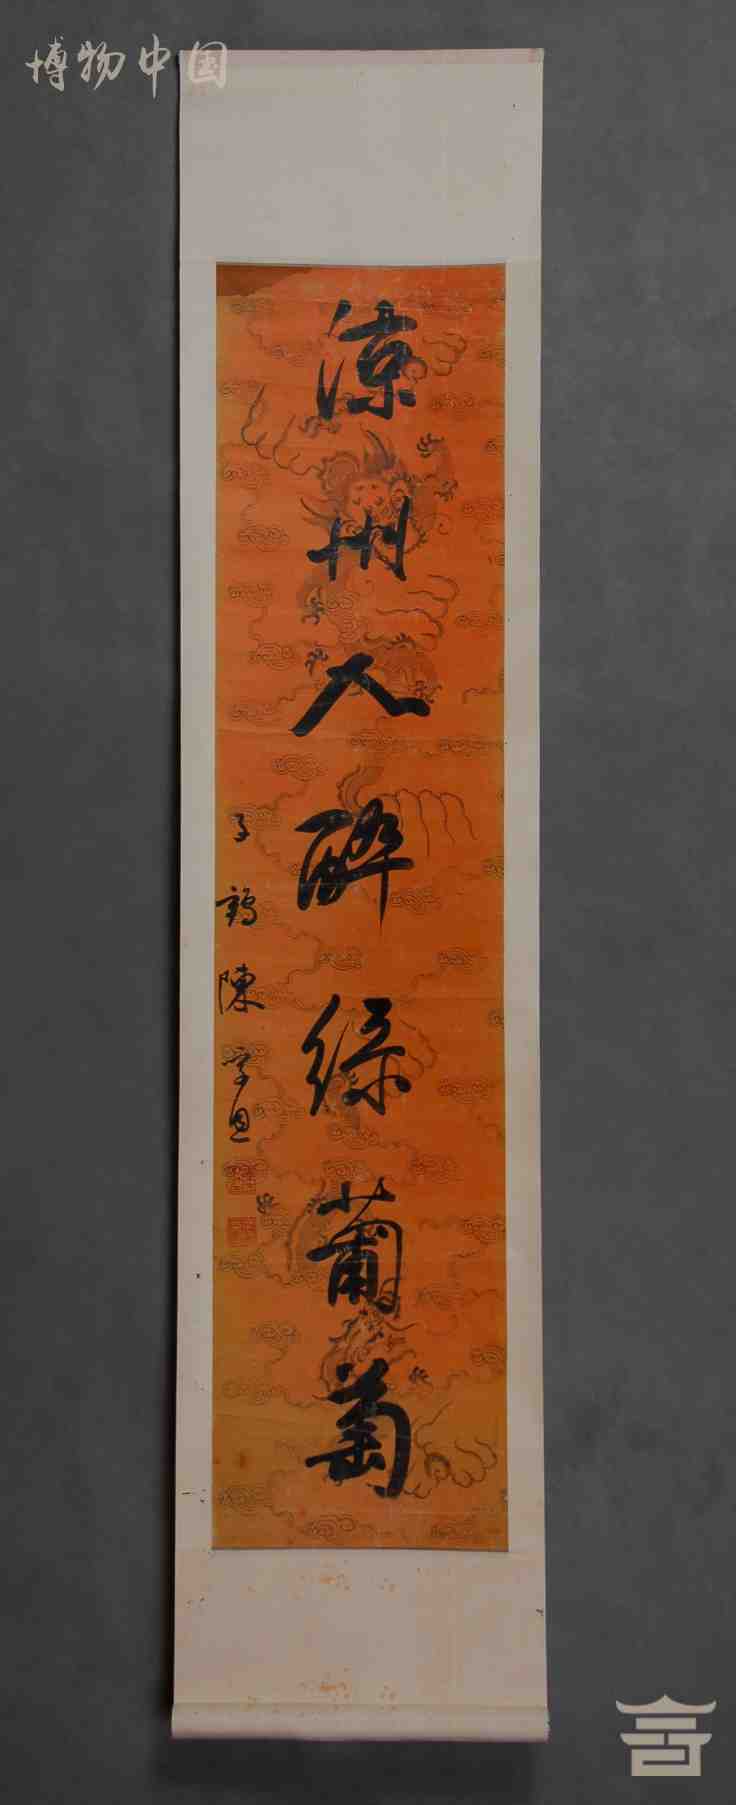 博物中国
涼州人醉綠葡萄
子鶴陳孚恩